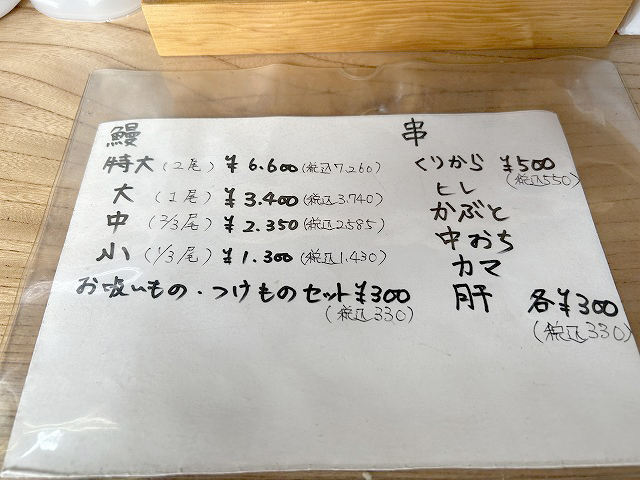 鰻
特大(2尾) ¥6.600(税込7,260)
大(1尾) ¥3.400(税込3.740)
中(2/3尾) ¥2.350(税込2.585)
小(1/3尾) ¥1.300(税込1.430)
お吸いもの・つけものセット¥300
(税込330)
串
くりから ¥500
(税込550)
ヒレ
かぶと
中おち
カマ
肝 各¥300
(税込330)